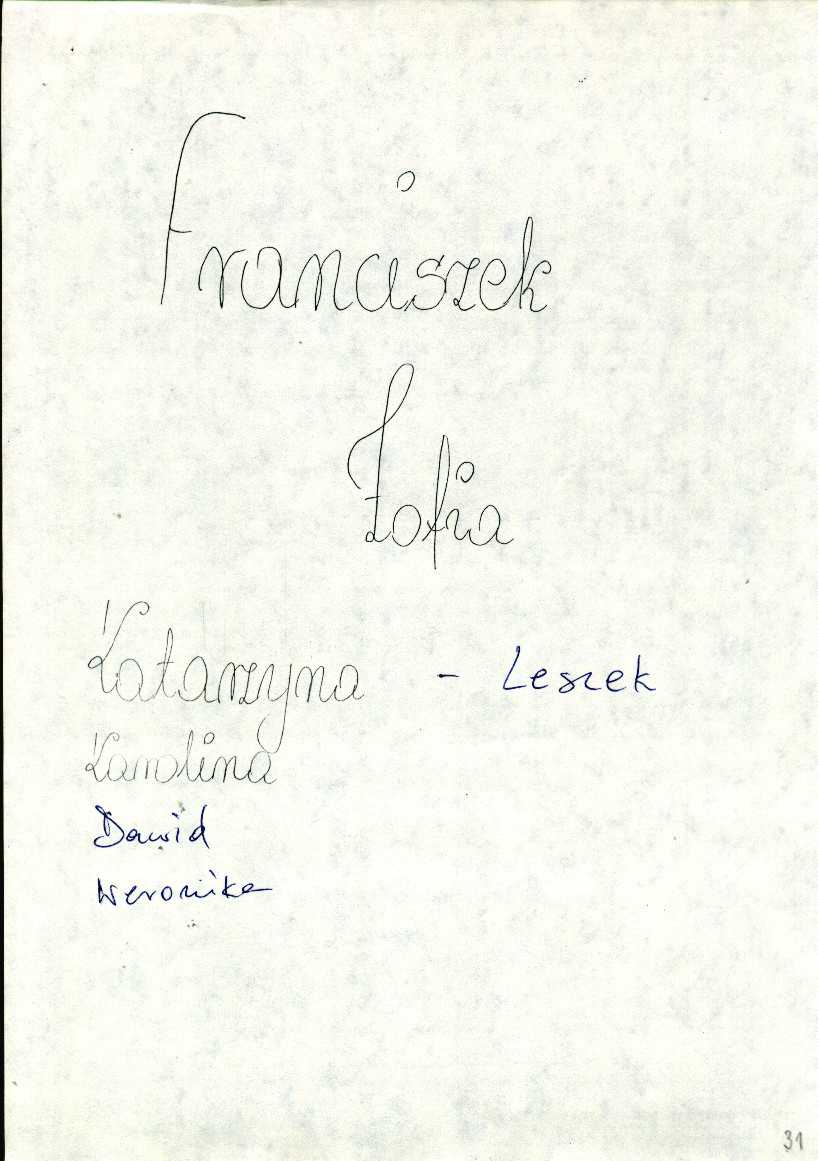 Franciszek
Zofia
Katarzyna - Leszek
Karolina
Dawid
Weronika
31